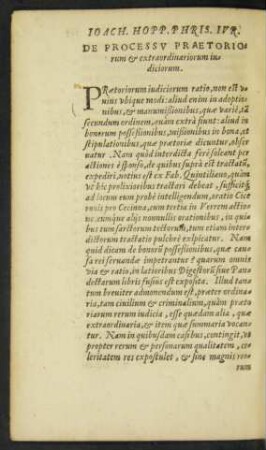 IOACH. HOPP. PHRIS. IVR.
DE PROCESSV PRAETORIO-
rum & extraordinariorum iu-
diciorum.
PRætoriorum iudiciorum ratio, non est v-
nius vbique modi: aliud enim in adoptio-
nibus, & manumissionibus, quæ variè, &
secundum ordinem, quàm extrà fiunt: aliud in
bonorum possessionibus, missionibus in bona, et
stipulationibus, quæ prætoriæ dicuntur, obser
uatur. Nam quòd interdicta ferè soleant per
actiones de quibus suprà est tractatũ,
expediri, notius est ex Fab. Quintiliano, quàm
vt hîc prolixioribus tractari debeat, sufficitq;
ad locum eum probè intelligendum, oratio Cice
ronis pro Cecinna, cum tertia in Verrem actio-
ne. cumque alijs nonnullis orationibus, in qui-
bus tum sarctorum tectorum, tum etiam inter-
dictorum tractatio pulchrè explicatur. Nam
quid dicam de bonorũ possessionibus, quæ cau-
sa rei seruandæ impetrantur? quarum omnis
via & ratio, in latioribus Digestorũ siue Pan-
dectarum libris fusius est exposita. Illud tan-
tum breuiter admonendum est, præter ordina-
ria, tam ciuilium & criminalium, quàm præto
riarum rerum iudicia, esse quædam alia, quæ
extraordinaria, & item quæ summaria vocan-
tur. Nam in quibusdam casibus, contingit, vt
propter rerum & personarum qualitatem, ce-
leritatem res expostulet, & sine magnis rerum
rum